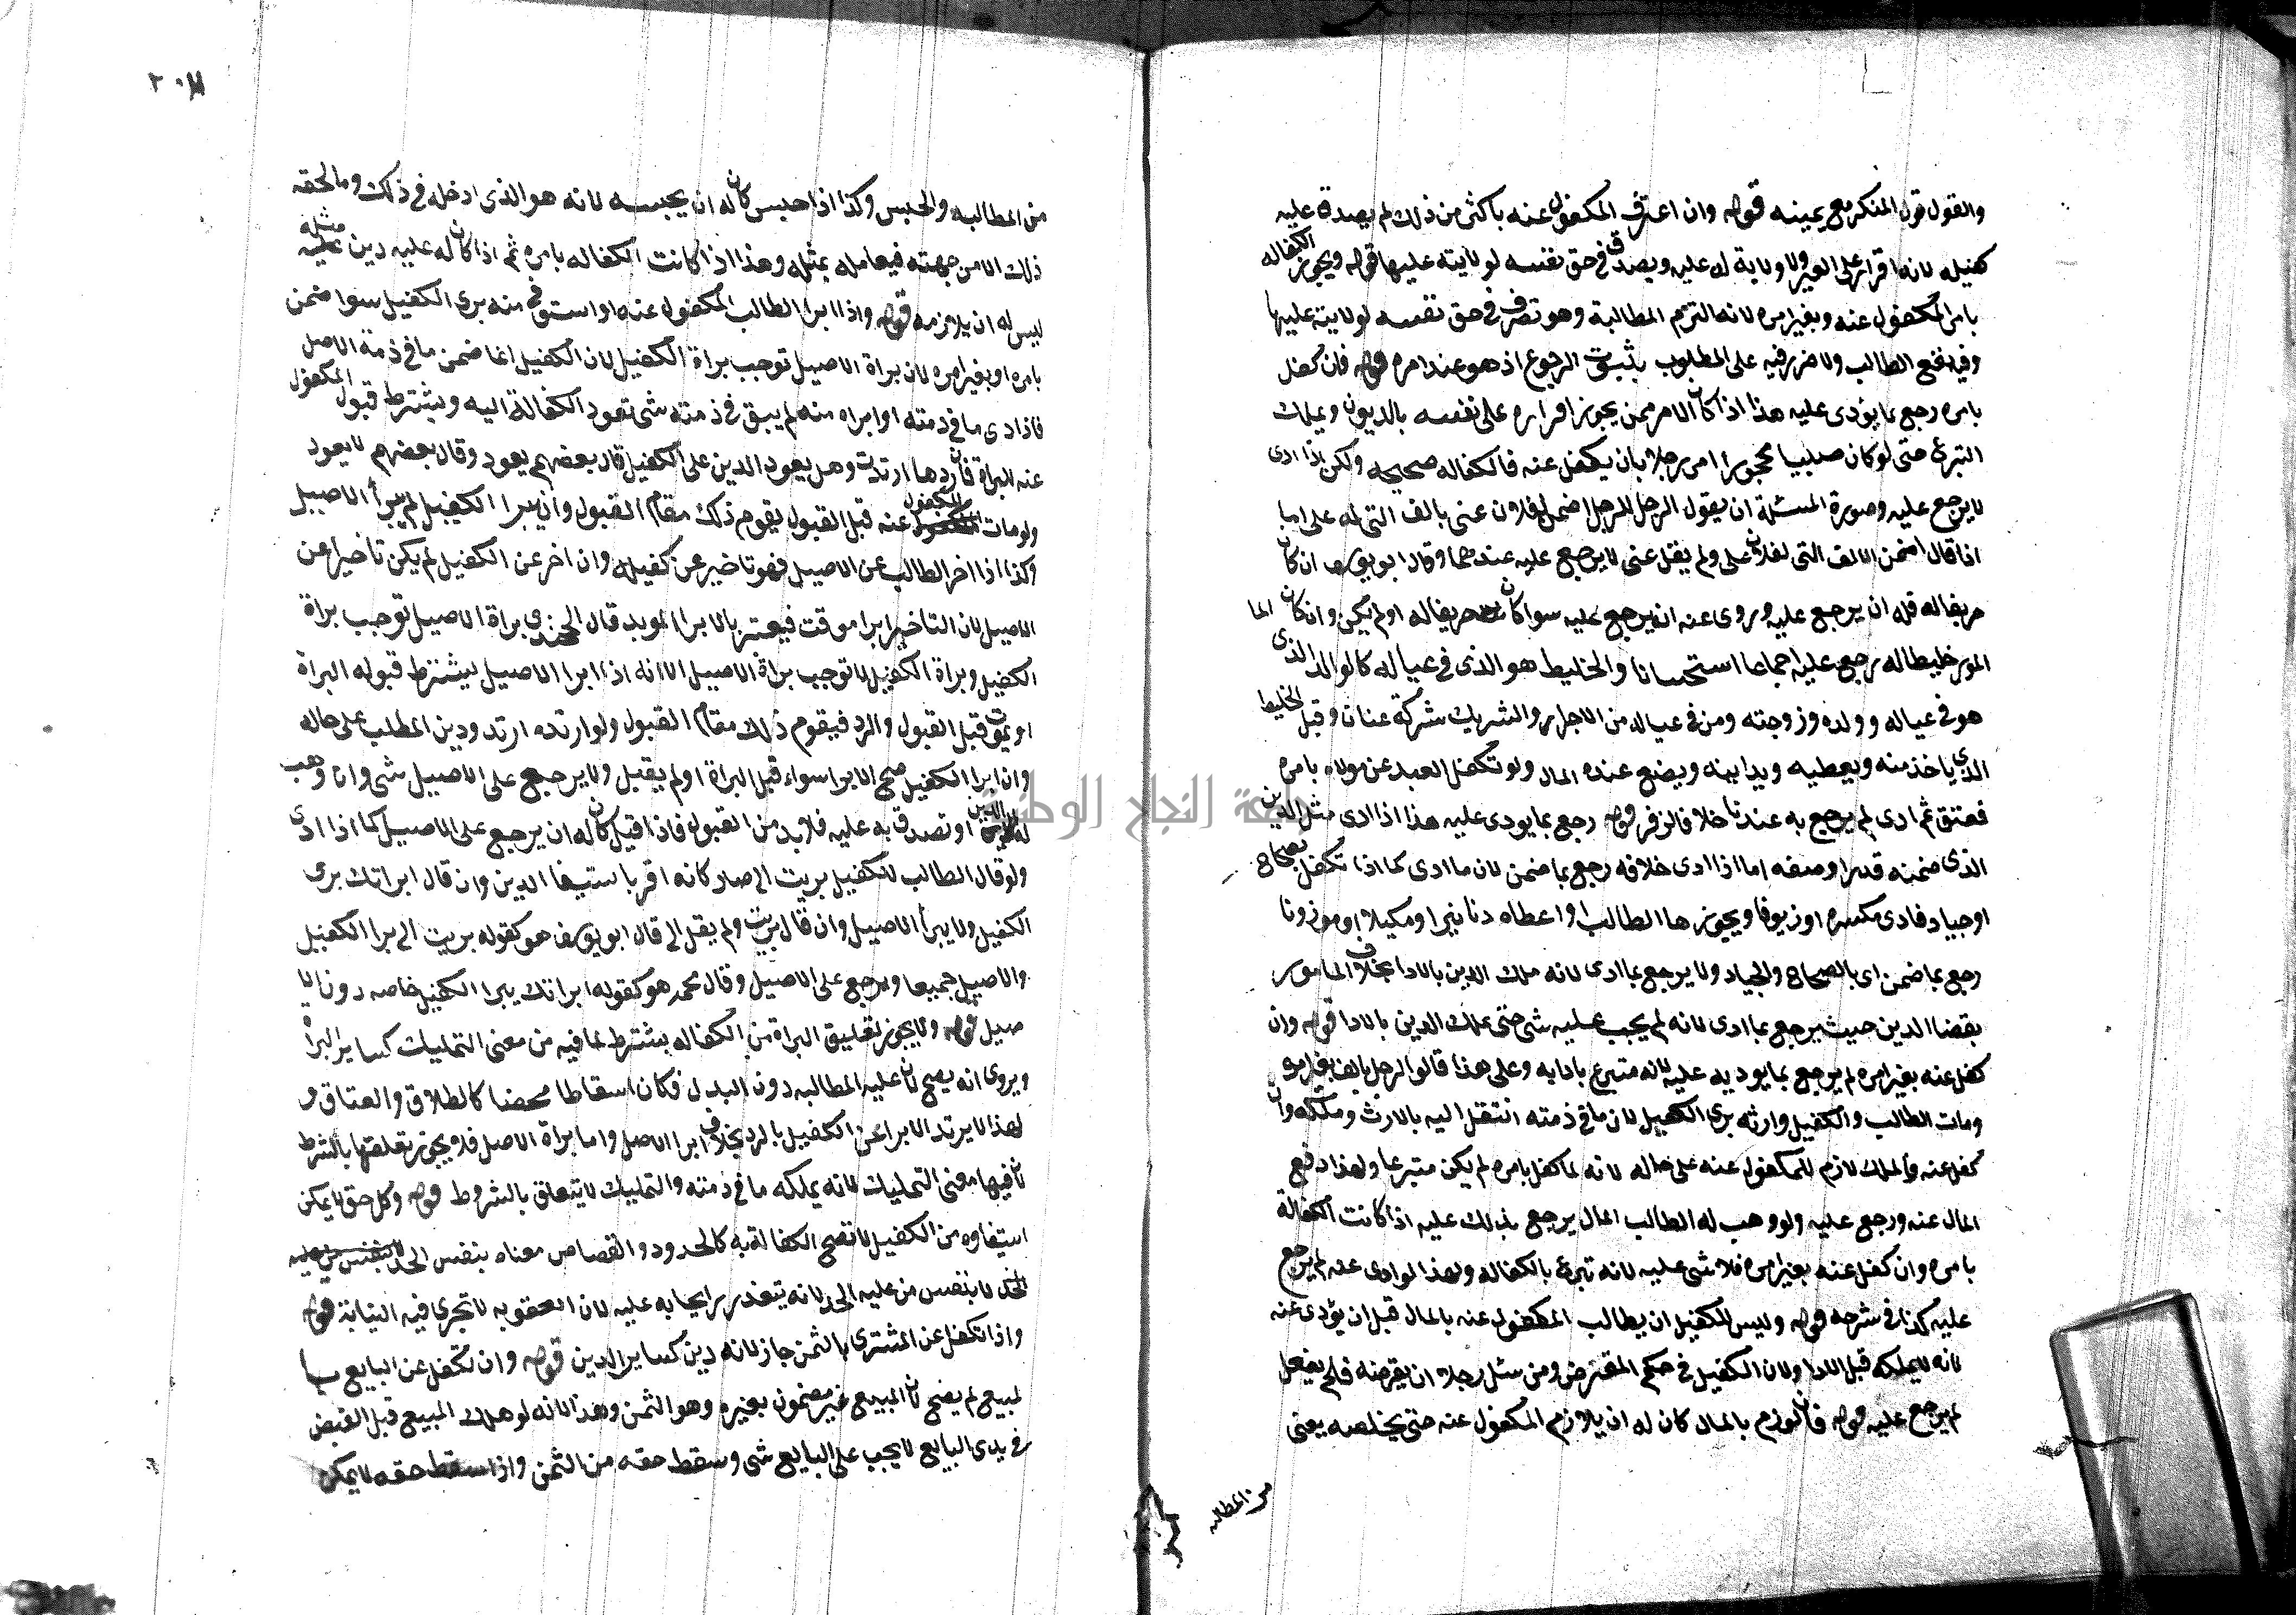 والقول قول المنكر مع يمينه قوله وان اعترف المكفول عنه باكثر من ذلك لم يصدق على
كفيله لانه اقرار على الغير ولا ولاية له عليه ويصدق في حق نفسه لولايته عليها قوله ويجوز الكفاله
بامر المكفول عنه وبغير امره لانه التزم المطالبة وهو تصرف في حق نفسه لولايته عليها
وفيه نفع الطالب ولا ضرر فيه على المطلوب بثبوت الرجوع اذ هو عند امره قوله فان كفل
بامره رجع بما يودى عليه هذا اذا كان الامر ممن يجوز اقراره على نفسه بالديون ويملك
التبرع حتى لو كان صبيا محجورا امر رجلا بان يكفل عنه فالكفاله صحيحه ولكن اذا ادى
لا يرجع عليه وصورة المسئلة ان يقول الرجل للرجل اضمن لفلان عني بالف التي له على اما
اذا قال اضمن الالف التي لفلان على ولم يقل عني لا يرجع عليه عندهما وقال ابو يوسف ان كان
حريفا له فله ان يرجع عليه وروى عنه انه يرجع عليه سوا كان حريفا له او لم يكن وان كان الما
مور خليطا له رجع عليه اجماعا استحسانا والخليط هو الذى في عياله كالوالد الذى
هو في عياله وولده وزوجته ومن في عياله من الاجرا والشريك شركة عنان وقيل الخليط
الذى ياخذ منه ويعطيه ويداينه ويضع عنده المال ولو تكفل العبد عن مولاه بامره
فعتق ثم ادى لم يرجع به عندنا خلافا لزفر قوله رجع بما يودى عليه هذا اذا ادى مثل الدين
الذى ضمنه قدرا وصفه اما اذا ادى خلافه رجع بما ضمن لان ما ادى كما اذا تكفل بصحاح
او جياد فادى مكسره او زيوفا ويجوز بها الطالب او اعطاه دنانير او مكيلا او موزونا
رجع بما ضمن اى بالصحاح والجياد ولا يرجع بما ادى لانه ملك الدين بالادا بخلاف المامور
بقضا الدين حيث يرجع بما ادى لانه لم يجب عليه شى حتى يملك الدين بالادا قوله وان
كفل عنه بغير امره لم يرجع بما يوديه عليه لانه متبرع بادايه وعلى هذا قالوا الرجل بالف بغير امره
ومات الطالب والكفيل وارثه برى الكفيل لان ما في ذمته انتقل اليه بالارث وملكه وان
كفل عنه والملك لازم للمكفول عنه على حاله لانه لما كفل بامره لم يكن متبرعا ولهذا دفع
المال عنه ورجع عليه ولو وهب له الطالب المال يرجع بذلك عليه اذا كانت الكفالة
بامره وان كفل عنه بغير امره فلا شى عليه لانه تبرع بالكفاله ولهذا لو ادى عنه لم يرجع
عليه كذا في شرحه قوله وليس للكفيل ان يطالب المكفول عنه بالمال قبل ان يؤدى عنه
لانه لا يملكه قبل الادا ولان الكفيل في حكم المقترض ومن سئل رجلا ان يقرضه فلم يفعل
لم يرجع عليه قوله فان لوزم بالمال كان له ان يلازم المكفول عنه حتى يخلصه يعني
من المطالبه
من المطالبه والحبس وكذا اذا حبس كان له ان يحبسه لانه هو الذى ادخله في ذلك وما لحقه
ذلك الا من جهته فيعامله بمثله وهذا اذا كانت الكفاله بامره ثم اذا كان له عليه دين مثله
ليس له ان يلازمه قوله واذا ابرا الطالب المكفول عنه او استوفى منه برى الكفيل سوا ضمن
بامره او بغير امره لان براة الاصيل توجب براة الكفيل لان الكفيل انما ضمن ما في ذمة الاصل
فاذا دى ما في ذمته او ابراه منه لم يبق في ذمته شى تعود الكفالة اليه ويشترط قبول المكفول
عنه البراة فان ردها ارتدت وهل يعود الدين على الكفيل قال بعضهم يعود وقال بعضهم لا يعود
ولو مات المكفول عنه قبل القبول يقوم ذلك مقام القبول وان ابرا الكفيل لم يبرأ الاصيل
وكذا اذا اخر الطالب عن الاصيل فهو تاخير عن كفيله وان اخر عن الكفيل لم يكن تاخيرا عن
الاصيل لان التاخير ابرا موقت فيعتبر بالابرا الموبد قال الخجندى براة الاصيل توجب براة
الكفيل وبراة الكفيل لا توجب براة الاصيل الا انه اذا ابرا الاصيل يشترط قبوله البراة
او يموت قبل القبول والرد فيقوم ذلك مقام القبول ولو ارتده ارتد ودين المطلب على حاله
وان ابرا الكفيل صح الابرا سواء قبل البراة او لم يقبل ولا يرجع على الاصيل شى وان وهب
له الدين او تصدق به عليه فلا بد من القبول فاذا قبل كان له ان يرجع على الاصيل كما اذا ادى
ولو قال الطالب للكفيل بريت الي صار كانه اقر باستيفا الدين وان قال ابراتك برى
الكفيل ولا يبرأ الاصيل وان قال بريت ولم يقل الي قال ابو يوسف هو كقوله بريت الي برا الكفيل
والاصيل جميعا ويرجع على الاصيل وقال محمد هو كقوله ابراتك يبرا الكفيل خاصه دون الا
صيل قوله ولا يجوز تعليق البراة من الكفاله بشرط لما فيه من معنى التمليك كساير البراة
ويروى انه يصح لان عليه المطالبه دون البدل فكان اسقاطا محضا كالطلاق والعتاق و
لهذا لا يرتد الابرا عن الكفيل بالرد بخلاف ابرا الاصل واما براة الاصل فلا يجوز تعلقها بالشرط
لان فيها معنى التمليك لانه يملكه ما في ذمته والتمليك لا يتعلق بالشروط قوله وكل حق لا يمكن
استيفاوه من الكفيل لا تصح الكفالة به كالحدود والقصاص معناه بنفس الحد
الحد لا بنفس من عليه الحد لانه يتعذر ايجابه عليه لان العقوبه لا تجرى فيه النيابة قوله
واذا تكفل عن المشترى بالثمن جاز لانه دين كساير الدين قوله وان تكفل عن البايع با
لمبيع لم يصح لان المبيع غير مضمون بغيره وهو الثمن وهذا لانه لو هلك المبيع قبل القبض
في يدى البايع لا يجب على البايع شى وسقط حقه من الثمن واذا سقط حقه لا يمكن
جامعة النجاح الوطنية